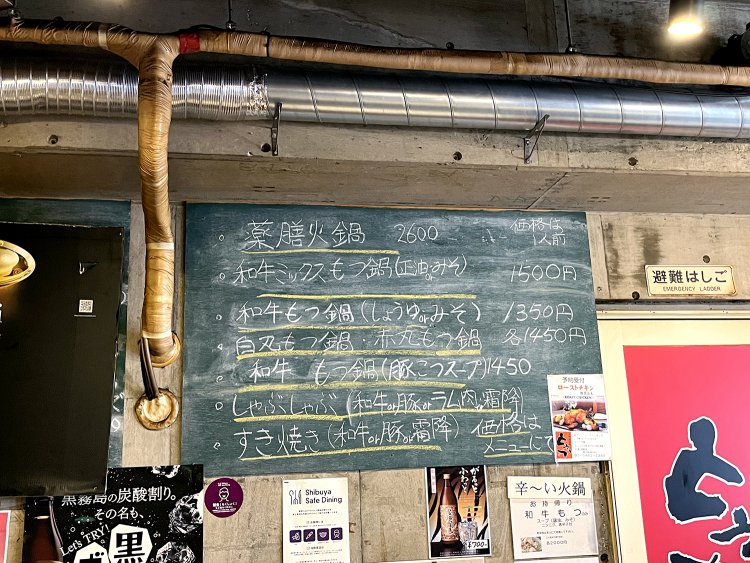 薬膳火鍋 2600 価格は
1人前
和牛ミックスもつ鍋(正油orみそ 1500円
和牛もつ鍋(しょうゆorみそ) 1350円
白丸もつ鍋・赤丸もつ鍋 各1450円
和牛 もつ鍋(豚こつスープ)1450
しゃぶしゃぶ(和牛or豚orラム肉or霜降)
すき焼き(和牛or豚or霜降) 価格は
メニューにて
避難はしご
EMERGENCY LADDER
予約受付
ローストチキン
黒霧島の炭酸割り。
その名も、
Let's TRY!
黒
Shibuya
Safe Dining
¥700
辛〜い火鍋
お持帰り
和牛もつ